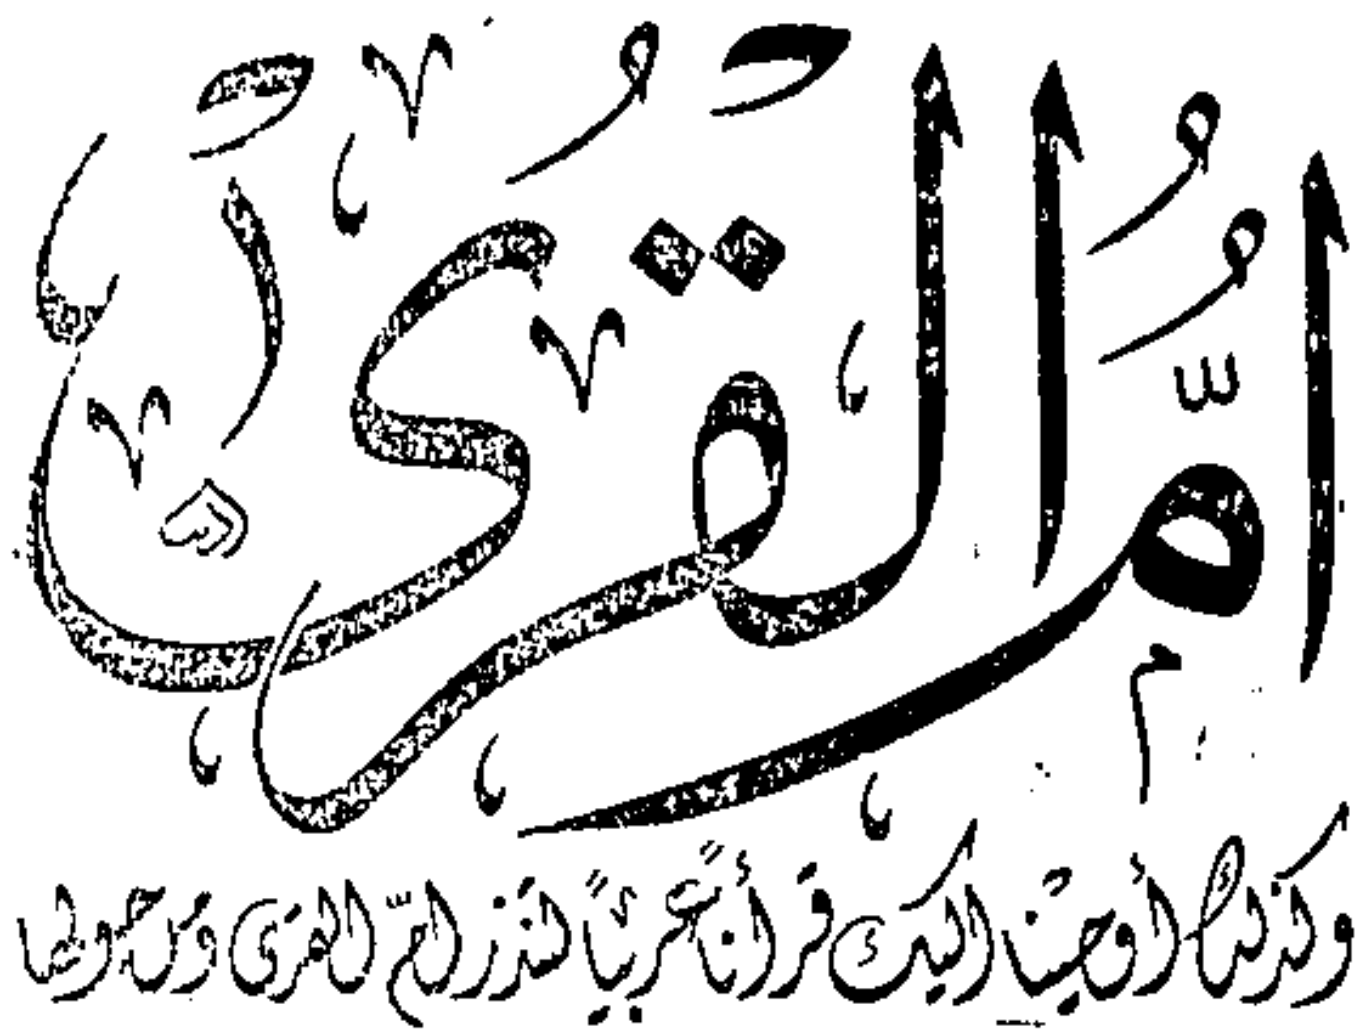 أمّ القرى
وكذلك أوحينا اليك قرأناً عربياً لتنذر امّ القرى ومن حولها